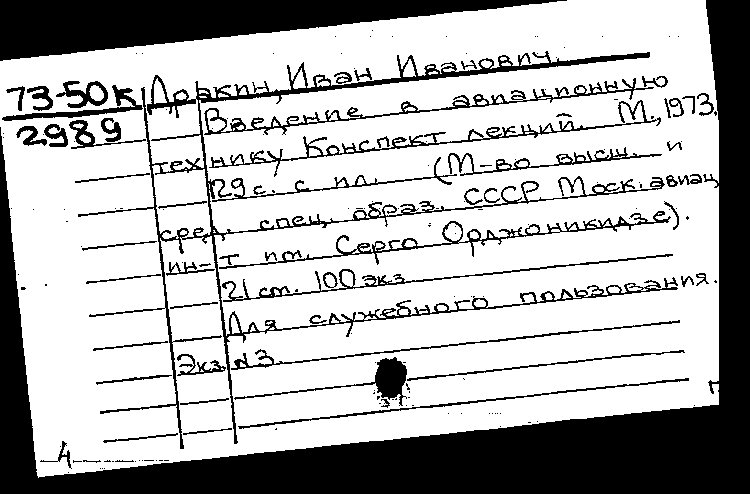 73-50к Дракин, Иван Иванович.
2989 Введение в авиационную
технику Конспект лекций. М., 1973.
129 с. с ил. (М-во высш. и
сред. спец. образ. СССР. Моск. авиац.
ин-т им. Серго Орджоникидзе).
21 ст. 100 экз
Для служебного пользования.
Экз. N 3.
4